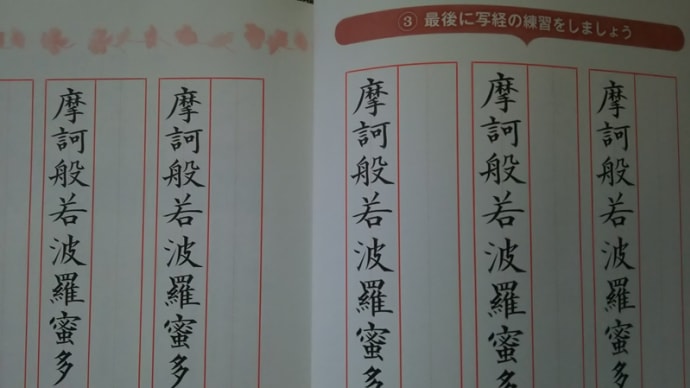 ③ 最後に写経の練習をしましょう
摩訶般若波羅蜜多
摩訶般若波羅蜜多
摩訶般若波羅蜜多
摩訶般若波羅蜜多
摩訶般若波羅蜜多